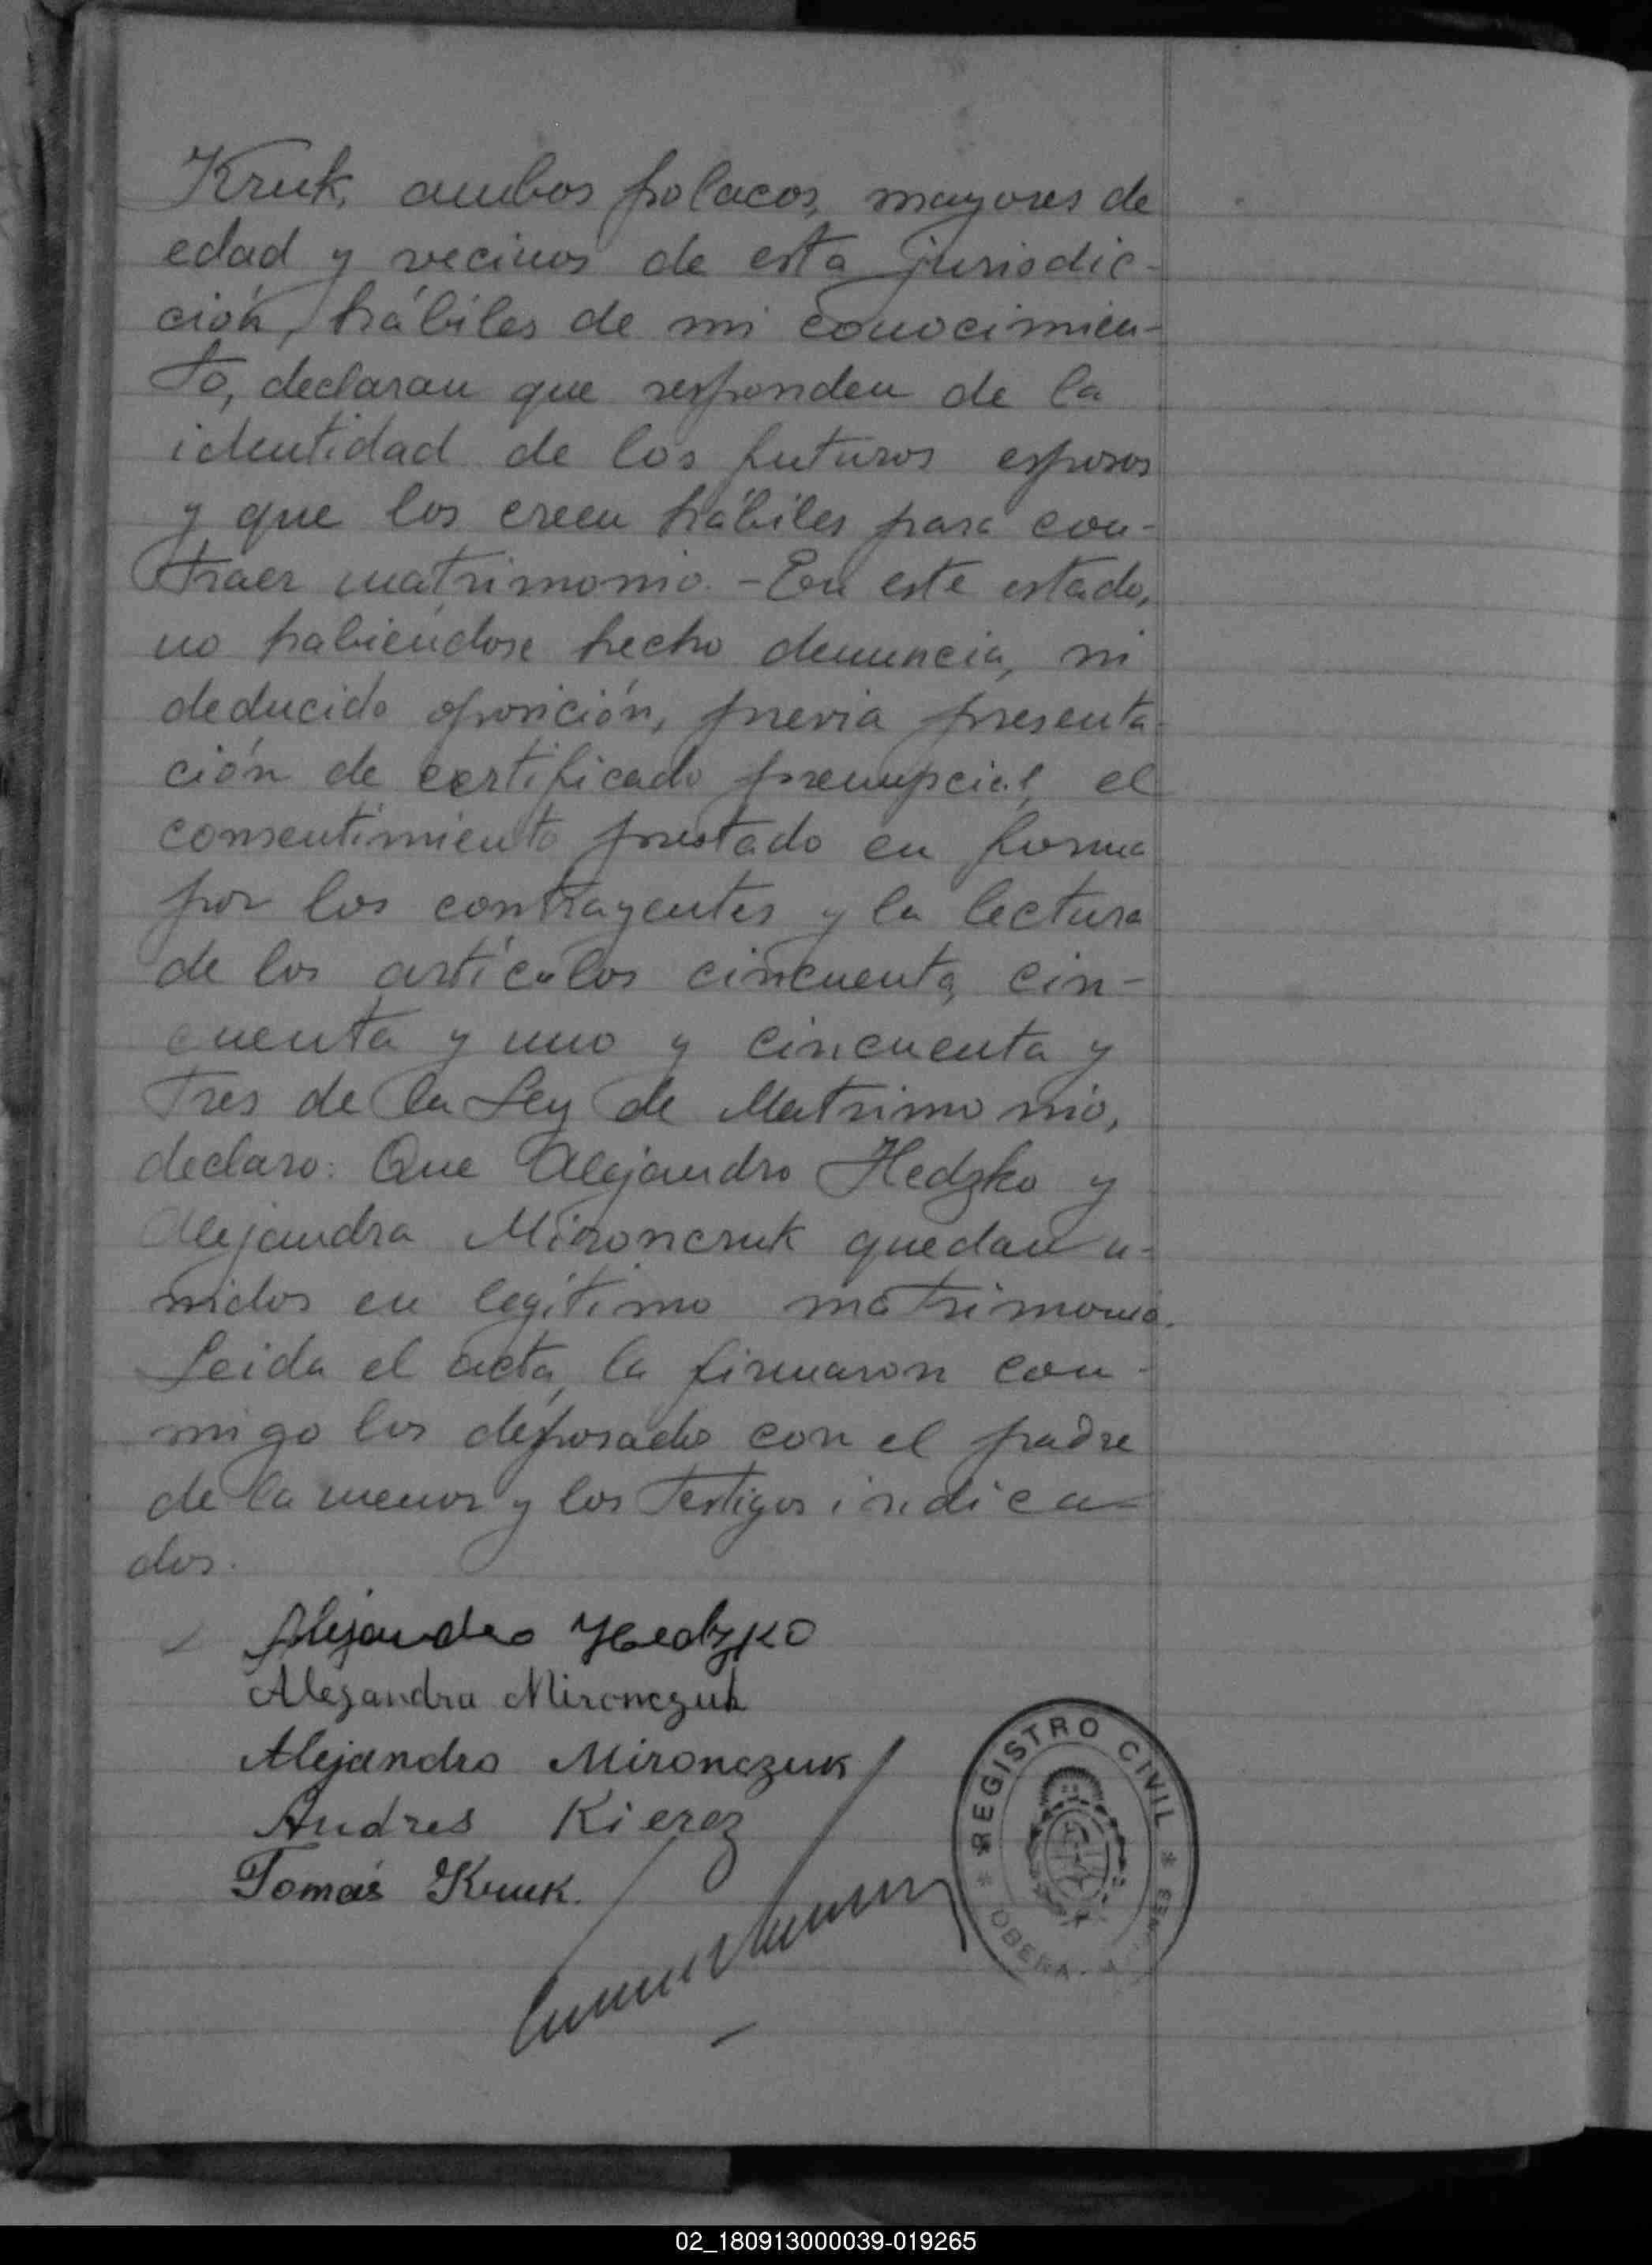 Kruk, ambos polacos, mayores de
edad y vecinos de esta jurisdic-
ción, hábiles de mi conocimien-
to, declaran que responden de la
identidad de los futuros esposos
y que los creen hábiles para con-
traer matrimonio.- En este estado,
no habiéndose hecho denuncia, ni
deducido oposición, previa presenta-
ción de certificado prenupcial, el
consentimiento prestado en forma
por los contrayentes y la lectura
de los artículos cincuenta, cin-
cuenta y uno y cincuenta y
tres de la Ley de Matrimonio,
declaro: Que Alejandro Hedzko y
Alejandra Mironcruk quedan u-
nidos en legítimo matrimonio.
Leida el acta, la firmaron con-
migo los deposados con el padre
de la menor y los testigos indica-
dos.
Alejandro Hedzko
Alejandra Mironczuk
Alejandro Mironczuk
Andres Kierez
Tomás Kruk.
* REGISTRO CIVIL *
OBERA
02_180913000039-019265